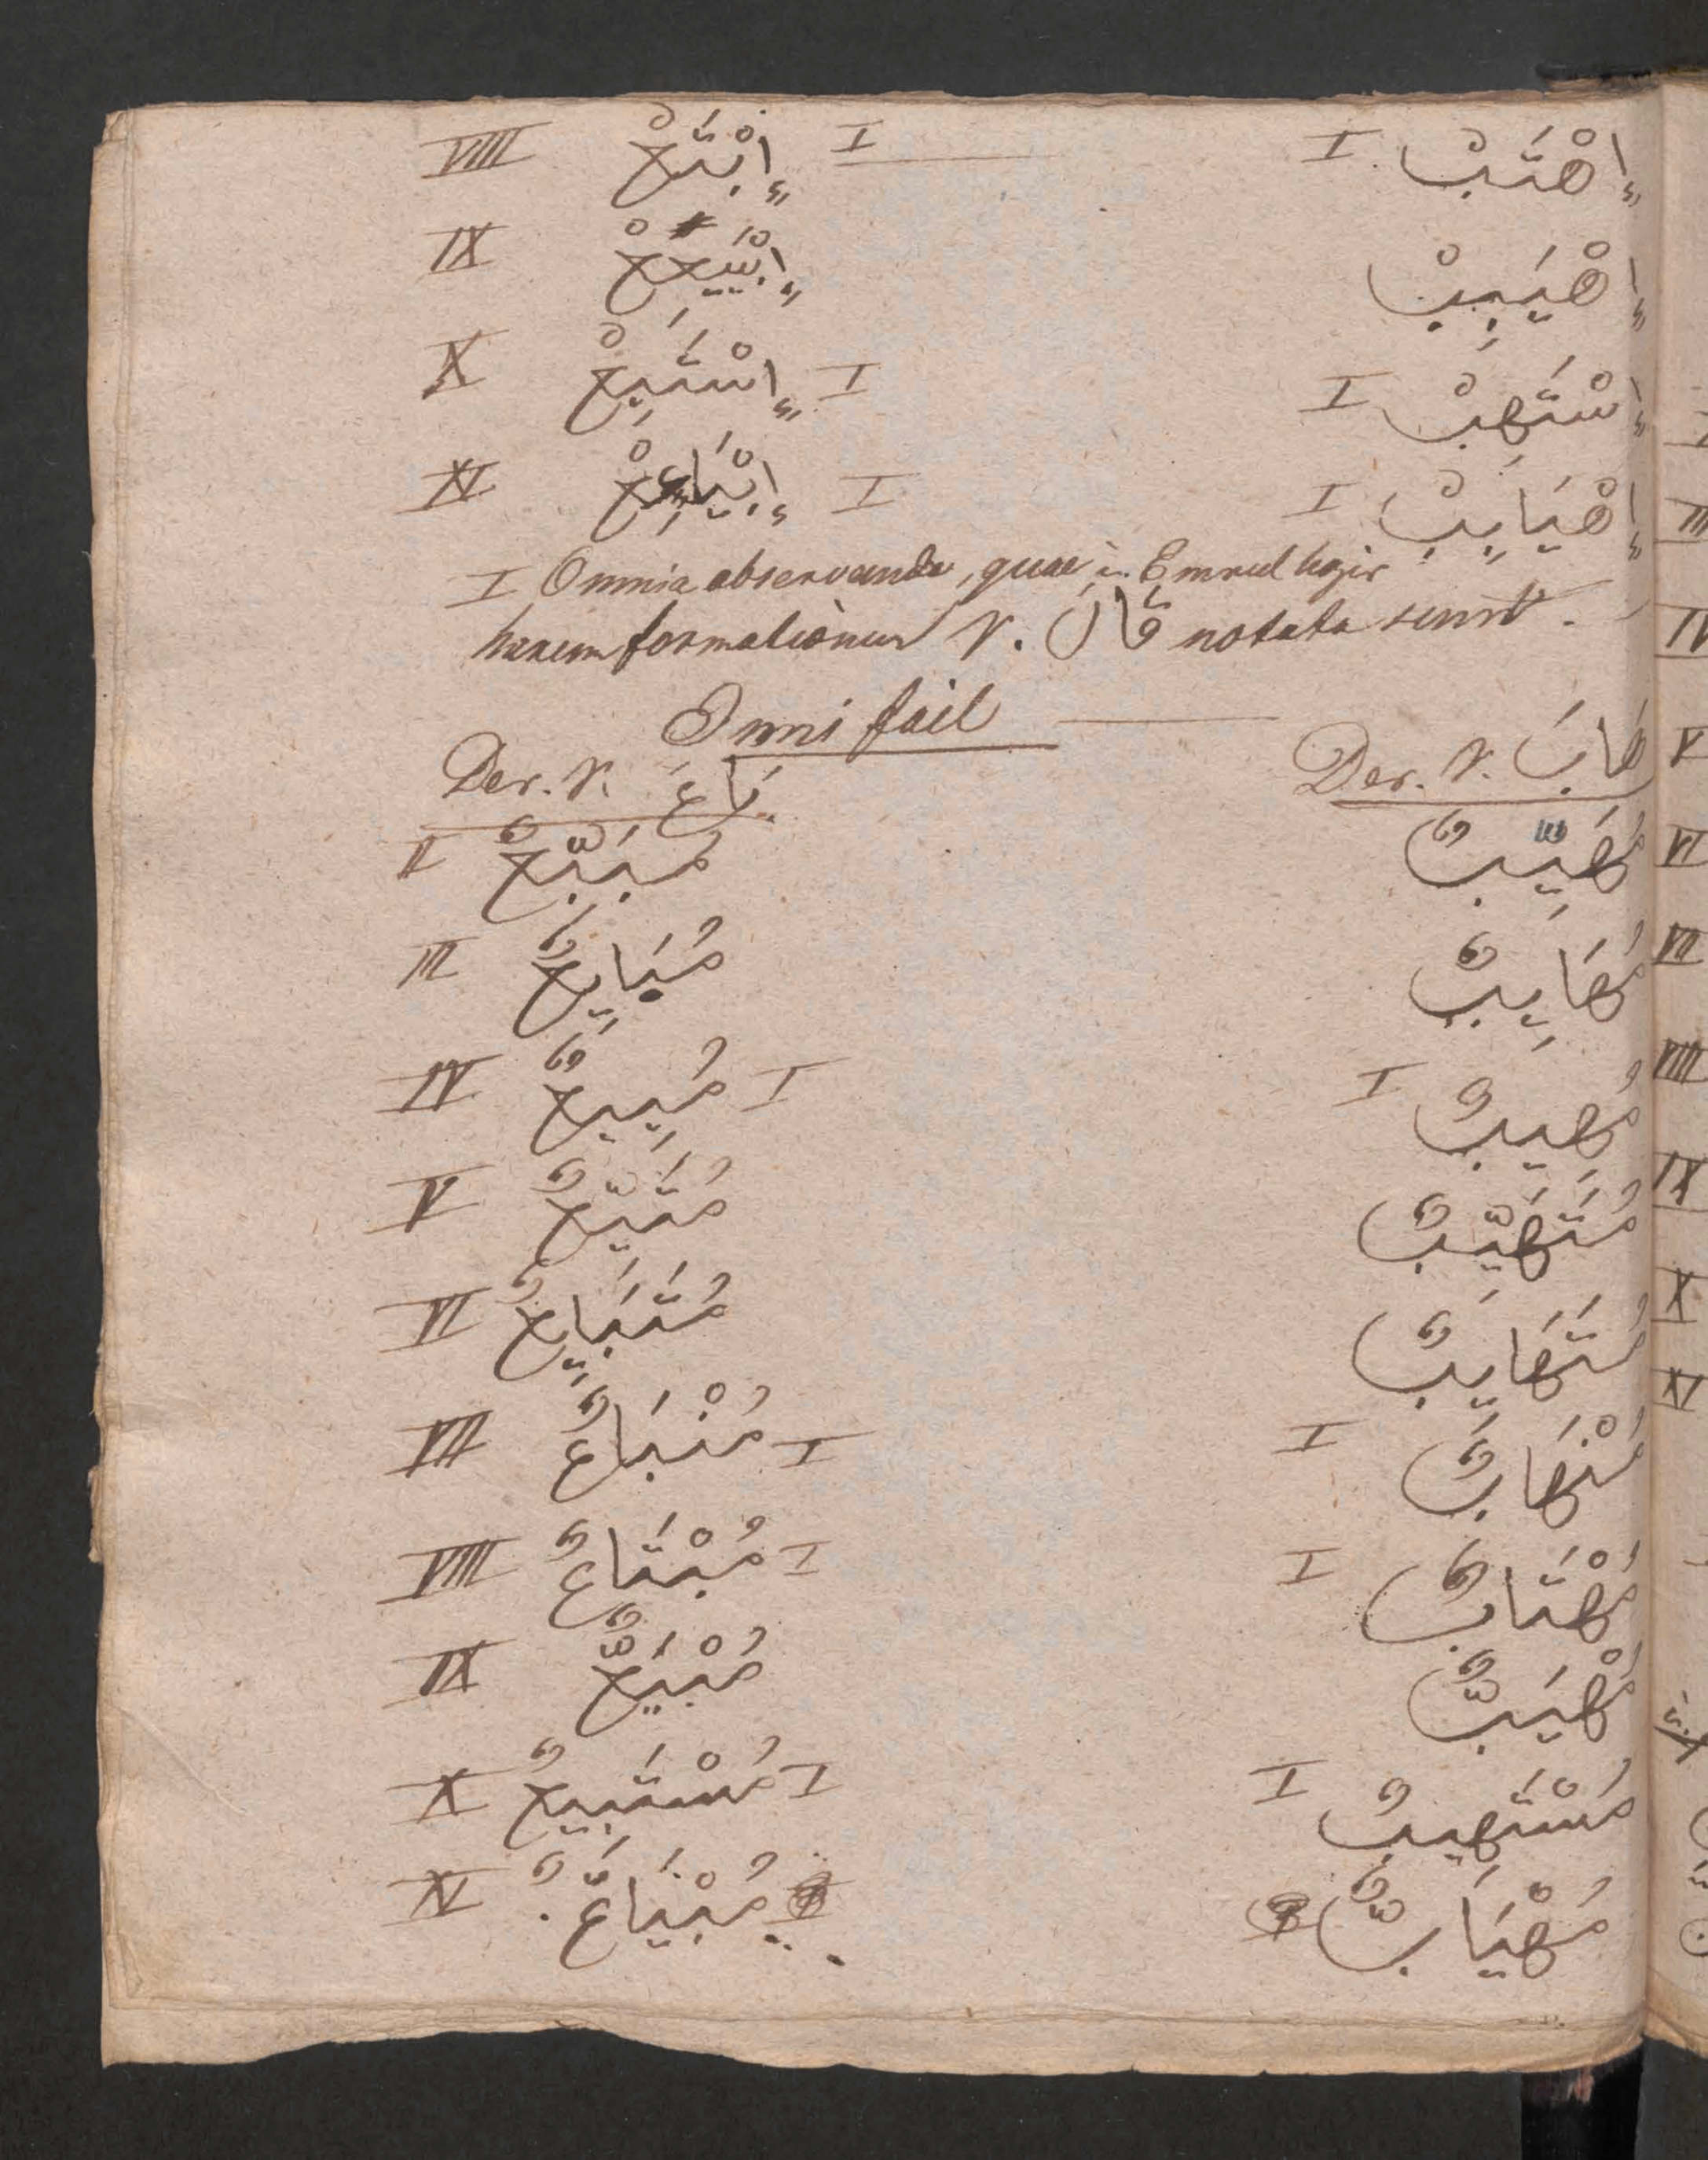 VIII إِبْتَعْ I إِهْتَبْ I
IX إِبْيَعِعْ إِهْيَبِبْ
X إِسْتَبِعْ I إِسْتَهِبْ I
XI إِبْيَاعِعْ I إِهْيَابِبْ I
I Omnia observanda, quae in Emrul hazir
harum formationum V. قَالَ notata sunt.
Ismi fail
Der. V. بَاعَ Der. V. هَابَ
II مُبَيِّعٌ مُهَيِّبٌ
III مُبَايِعٌ مُهَايِبٌ
IV مُبِيعٌ I مُهِيبٌ I
V مُتَبَيِّعٌ مُتَهَيِّبٌ
VI مُتَبَايِعٌ مُتَهَايِبٌ
VII مُنْبَاعٌ I مُنْهَابٌ I
VIII مُبْتَاعٌ I مُهْتَابٌ I
IX مُبْيَعٌّ مُهْيَبٌّ
X مُسْتَبِيعٌ I مُسْتَهِيبٌ I
XI مُبْيَاعٌّ مُهْيَابٌّ
III
IV
V
VI
VII
VIII
IX
X
XI